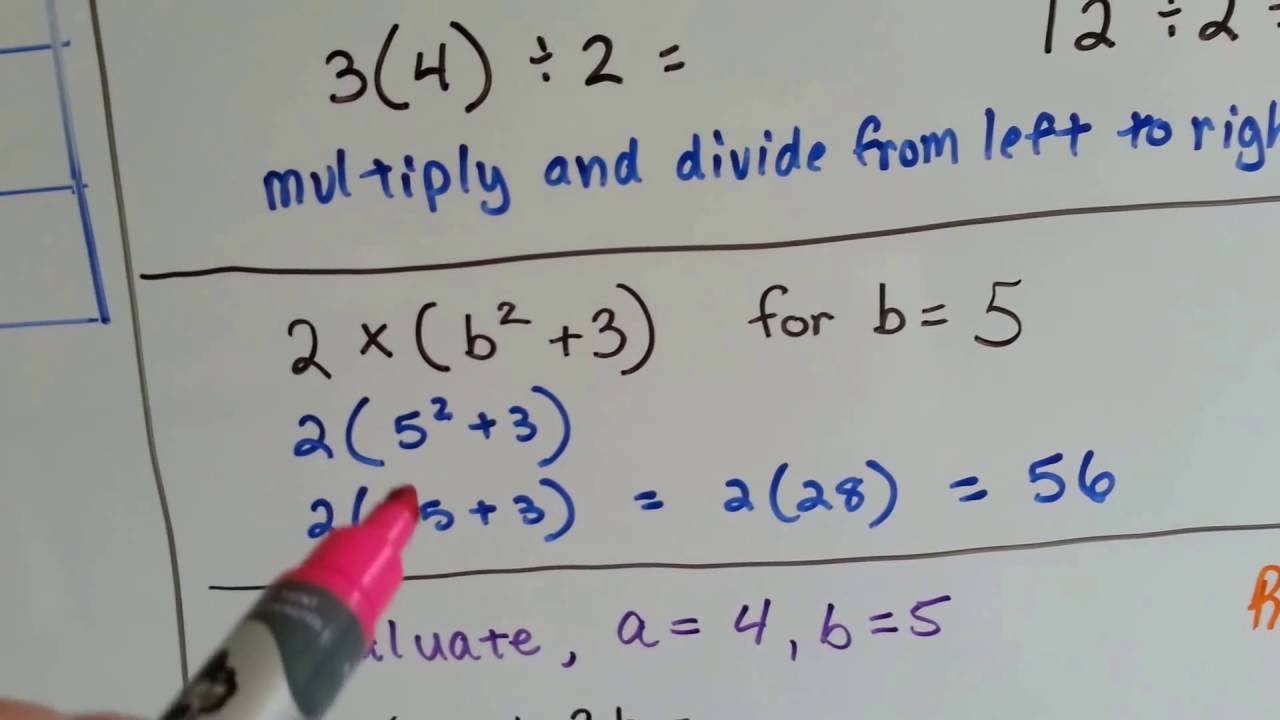 3(4) ÷ 2 =
12 ÷ 2
multiply and divide from left to
2 × (b² + 3) for b = 5
2(5² + 3)
2( 5 + 3) = 2(28) = 56
, a = 4, b = 5